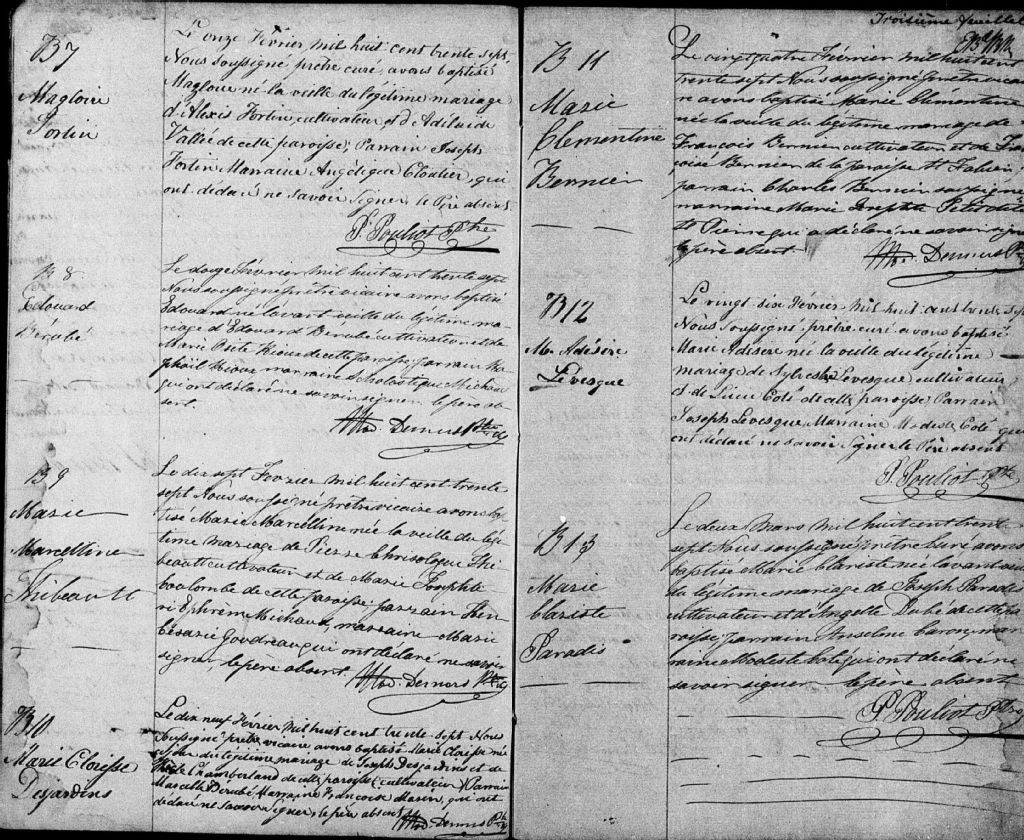 B7
Magloire
Fortin
Le onze Février mil huit cent trente sept
Nous soussigné prêtre curé, avons baptisé
Magloire né la veille du légitime mariage
d'Alexis Fortin cultivateur, et d'Adélaide
Vallée de cette paroisse, Parrain Joseph
Fortin Marraine Angélique Cloutier, qui
ont déclaré ne savoir signer, le Père absent.
P. Pouliot Ptre
B 8
Edouard
Bérubé
Le douze Février mil huit cent trente sept
Nous soussigné prêtre vicaire avons baptisé
Edouard né l'avant veille du légitime ma-
riage d'Edouard Bérubé cultivateur et de
Marie Rioux de cette paroisse, parrain Ra-
phaël Rioux marraine Scholastique Michau
qui ont déclaré ne savoir signer, le père ab-
sent.
B 9
Marie
Marcelline
Thibeault
Le dix sept Fevrier mil huit cent trente
sept Nous soussigné prêtre vicaire avons bap-
tisé Marie Marcelline née la veille du légi-
time mariage de Pierre Chrisologue Thi-
beault cultivateur et de Marie Josephte
boulombe de cette paroisse parrain Hen-
ri Ephrem Michaud, marraine Marie
Césarie Goudreau qui ont déclaré ne savoir
signer le père absent
B10
Marie Cloresse
Desjardins
Le dix neuf Février mil huit cent trente sept Nous
soussigné prêtre vicaire avons baptisé Marie Cloresse née
du légitime mariage de Joseph Desjardins et de
Chamberland de cette paroisse, cultivateur, Parrain
Marcelle Bérubé Marraine Françoise Marin, qui ont
déclaré ne savoir signer, le père absent
Troisième feuillet
B 11
Marie
Clementine
Bernier
Le vingt quatre Février mil huit cent
trente sept Nous soussigné prêtre vicai-
re avons baptisé Marie Clémentine
née la veille du légitime mariage de
François Bernier cultivateur et de Fran-
çoise Bernier de la paroisse St Fabien,
parrain Charles Bernier soussigné
marraine Marie Josephte Petit dit St
Pierre qui a déclaré ne savoir signer
le père absent.
B12
M. Adisère
Levesque
Le vingt six Février mil huit cent trente sept
Nous soussigné prêtre curé avons baptisé
Marie Adisère née la veille du légitime
mariage de Sylvestre Levesque cultivateur
et de Luce Coté de cette paroisse Parrain
Joseph Levesque Marraine Modeste Coté qui
ont déclaré ne savoir signer le Père absent
P. Pouliot Ptre
B 13
Marie
Clariste
Paradis
Le deux Mars mil huit cent trent
sept Nous soussigné prêtre Curé avons
baptisé Marie Clariste née l'avant veille
du légitime mariage de Joseph Paradis
cultivateur et d'Angelle Dubé de cette pa-
roisse, parrain Anselme Caron, mar-
raine Modeste Coté qui ont déclaré ne
savoir signer le père absent
P. Pouliot Ptre